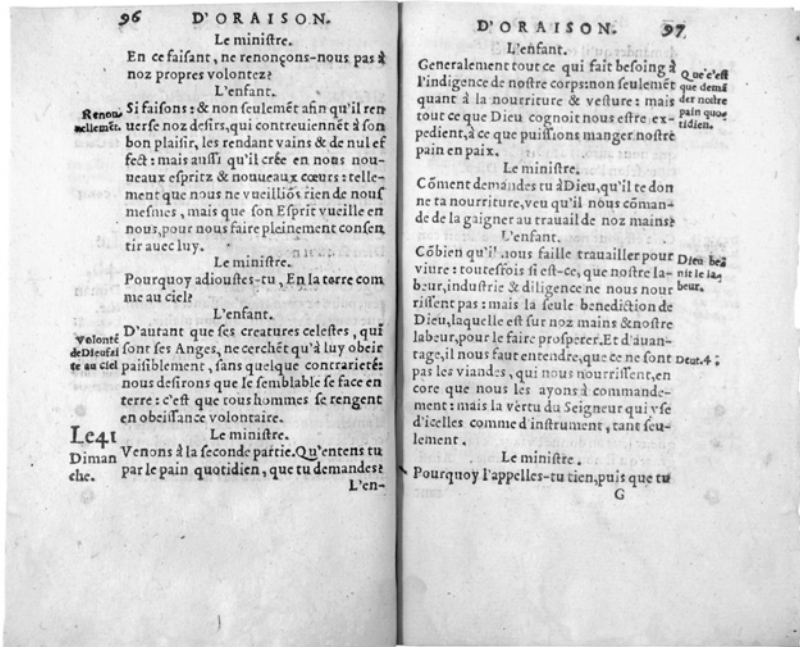 96 D'ORAISON.
Le ministre.
En ce faisant, ne renonçons-nous pas à
noz propres volontez?
L'enfant.
Renou
uellemēt.
Si faisons: & non seulemēt afin qu'il ren
uerse noz desirs, qui contreuiennēt à son
bon plaisir, les rendant vains & de nul ef
fect: mais aussi qu'il crée en nous nou-
ueaux espritz & nouueaux cœurs: telle-
ment que nous ne vueilliōs rien de nous
mesmes, mais que son Esprit vueille en
nous, pour nous faire pleinement consen
tir auec luy.
Le ministre.
Pourquoy adioustes-tu, En la terre com
me au ciel?
L'enfant.
Volonté
de Dieu fai
te au ciel
D'autant que ses creatures celestes, qui
sont ses Anges, ne cerchēt qu'à luy obeir
paisiblement, sans quelque contrarieté:
nous desirons que le semblable se face en
terre: c'est que tous hommes se rengent
en obeissance volontaire.
Le 41
Diman
che.
Le ministre.
Venons à la seconde partie. Qu'entens tu
par le pain quotidien, que tu demandes?
L'en-
D'ORAISON. 97
L'enfant.
Generalement tout ce qui fait besoing à
l'indigence de nostre corps: non seulemēt
quant à la nourriture & vesture: mais
tout ce que Dieu cognoit nous estre ex-
pedient, à ce que puissions manger nostre
pain en paix.
Que c'est
que demā
der nostre
pain quo
tidien.
Le ministre.
Cōment demandes tu à Dieu, qu'il te don
ne ta nourriture, veu qu'il nous cōman-
de de la gaigner au trauail de noz mains?
L'enfant.
Cōbien qu'il nous faille trauailler pour
viure: toutesfois si est-ce, que nostre la-
beur, industrie & diligence ne nous nour
rissent pas: mais la seule benediction de
Dieu, laquelle est sur noz mains & nostre
labeur, pour le faire prosperer. Et d'auan-
tage, il nous faut entendre, que ce ne sont
pas les viandes, qui nous nourrissent, en
core que nous les ayons à commande-
ment: mais la vertu du Seigneur qui vse
d'icelles comme d'instrument, tant seu-
lement.
Dieu bē
nit le la
beur.
Deut. 4;
Le ministre.
Pourquoy l'appelles-tu tien, puis que tu
G